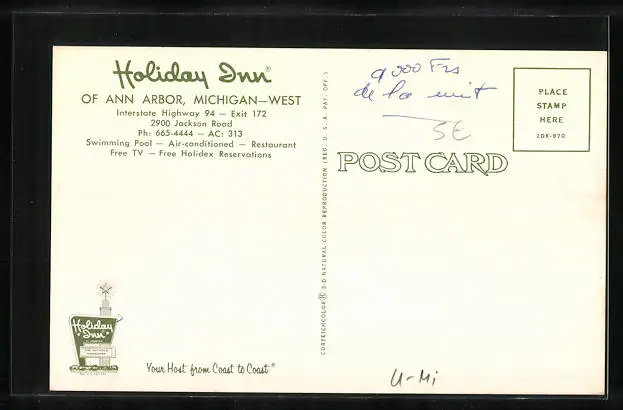 Holiday Inn®
OF ANN ARBOR, MICHIGAN—WEST
Interstate Highway 94 — Exit 172
2900 Jackson Road
Ph: 665-4444 — AC: 313
Swimming Pool — Air-conditioned — Restaurant
Free TV — Free Holidex Reservations
Holiday Inn
Your Host from Coast to Coast®
CURTEICHCOLOR® 3-D NATURAL COLOR REPRODUCTION (REG. U. S. A. PAT. OFF.)
9000 Frs
de la nuit
5€
POST CARD
PLACE
STAMP
HERE
2DK-870
U-Mi